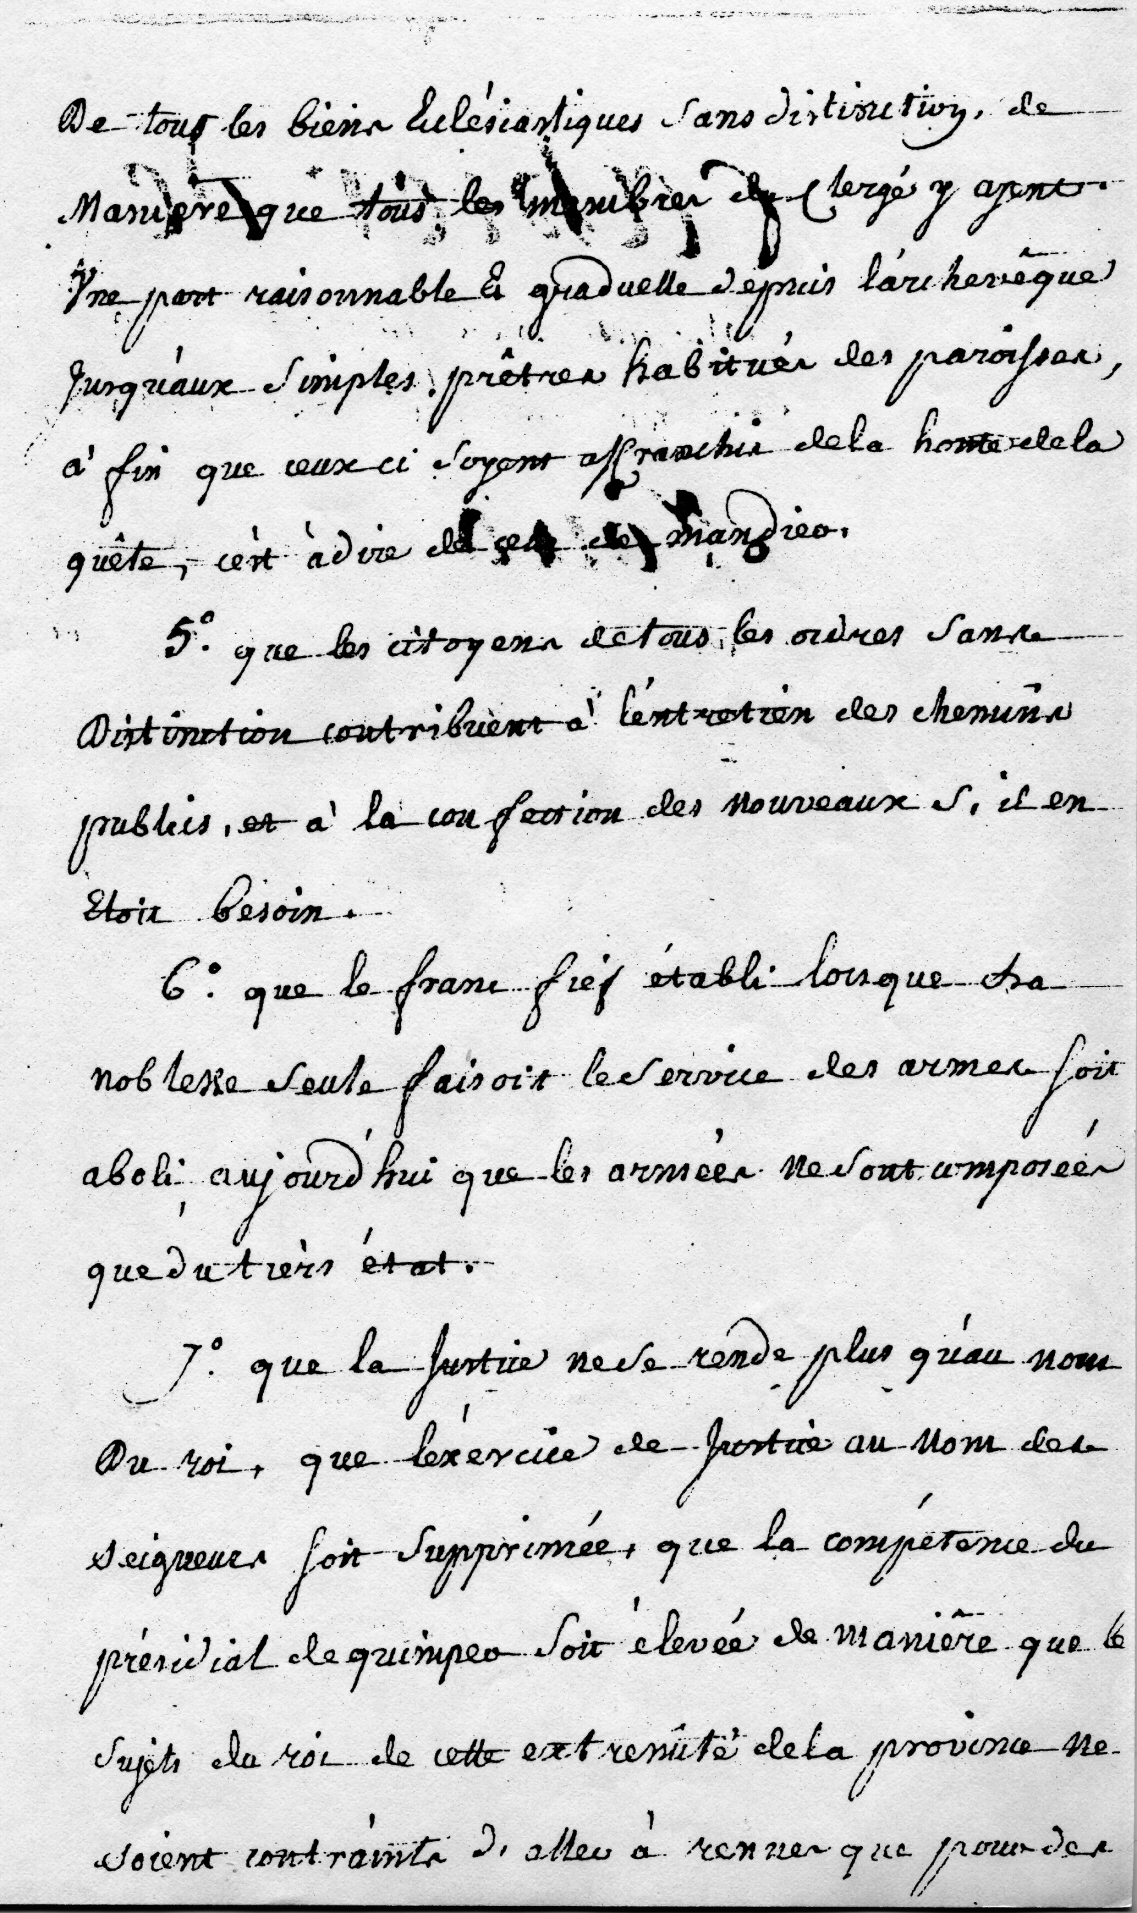 De tous les biens Eclésiastiques sans distinction, de
Maniere que tous les membres du Clergé y ayent
Une part raisonnable Et graduelle depuis l'archevêque
Jusqu'aux simples prêtres habitués des paroisses,
à fin que ceux ci soyent affranchis de la honte de la
quête, c'est àdire de celle de mandier.
5.° que les citoyens de tous les ordres sans
Distinction contribuent à l'éntretien des chemins
publics, et à la confection des nouveaux s, il en
Etoit besoin.
6.° que le franc fief établi lorsque la
noblesse seule faisoit le service des armes soit
aboli aujourd'hui que les armées ne sont composées
que du tiers état.
7.° que la Justice ne se rende plus qu'au nom
Du roi, que l'exércice de Justice au Nom des
seigneurs soit supprimée, que la compétence du
présidial de quimper soit élevée de maniêre que le
sujets du roi de cette extremité de la province ne
soient contraints d'aller à rennes que pour des